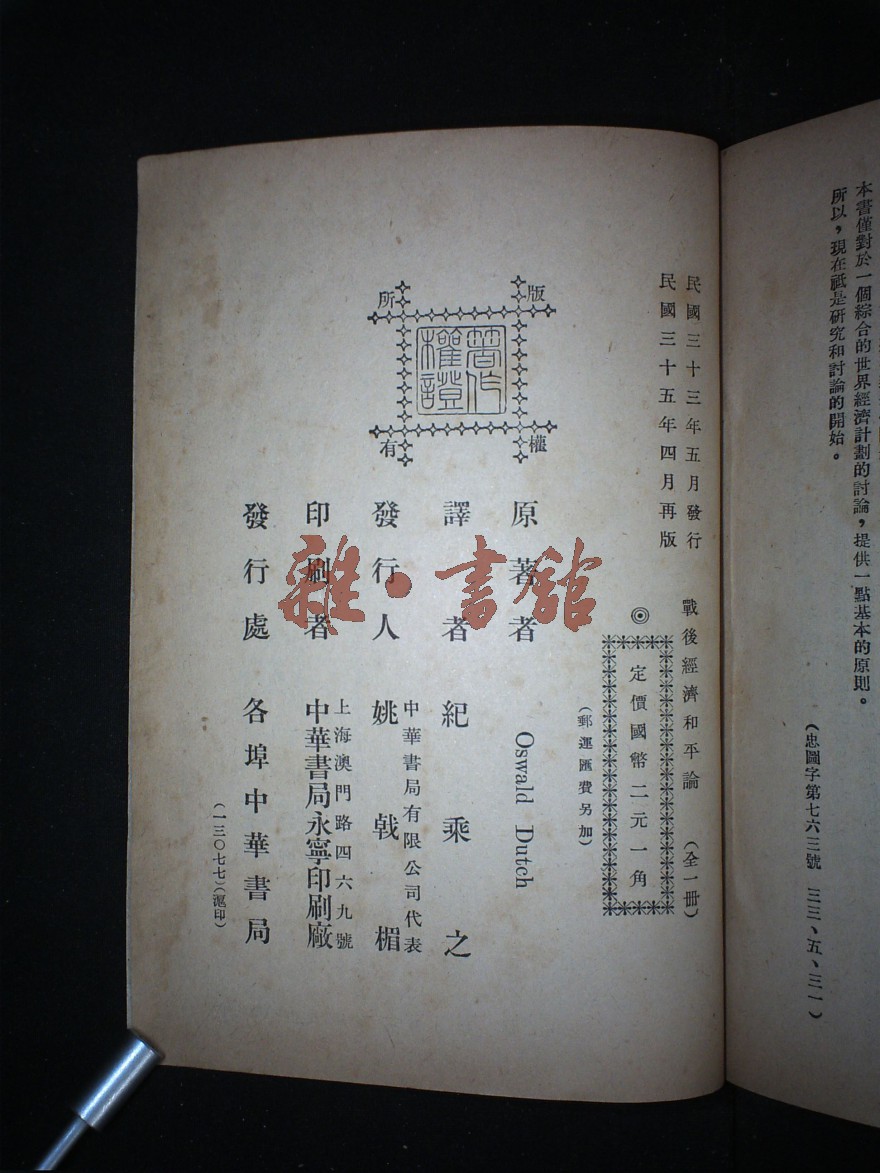 本書僅對於一個綜合的世界經濟計劃的討論，提供一點基本的原則。
所以，現在祇是研究和討論的開始。
（忠圖字第七六三號 三三、五、三一）
民國三十三年五月發行
民國三十五年四月再版
戰後經濟和平論 （全一冊）
◎
定價國幣二元一角
（郵運匯費另加）
版權所有
著作權證
原著者 Oswald Dutch
譯者 紀乘之
發行人 中華書局有限公司代表
姚戟楣
印刷者 上海澳門路四六九號
中華書局永寧印刷廠
發行處 各埠中華書局
（一三〇七七）（滬印）
雜·書館